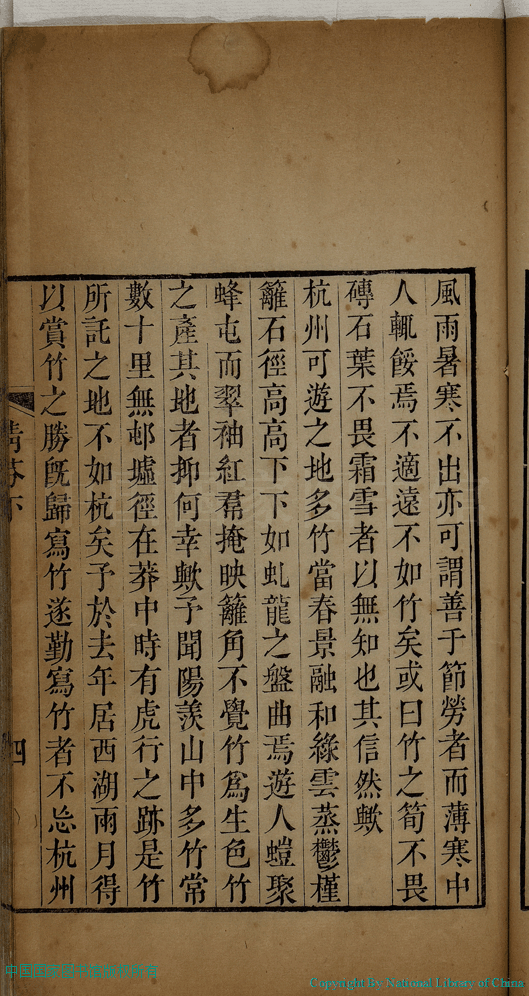 風雨暑寒不出亦可謂善于節勞者而薄寒中
人輒餒焉不適遠不如竹矣或曰竹之筍不畏
磚石葉不畏霜雪者以無知也其信然歟
杭州可遊之地多竹當春景融和綠雲蒸鬱槿
籬石徑高高下下如虬龍之盤曲焉遊人螘聚
蜂屯而翠袖紅帬掩映籬角不覺竹爲生色竹
之產其地者抑何幸歟予聞陽羨山中多竹常
數十里無邨墟徑在莽中時有虎行之跡是竹
所託之地不如杭矣予於去年居西湖兩月得
以賞竹之勝旣歸寫竹遂勤寫竹者不忘杭州
四
Copyright By National Library of China